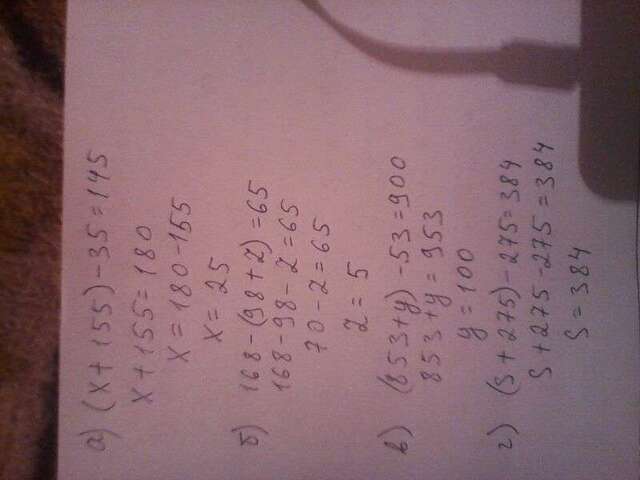 а) (x + 155) - 35 = 145
x + 155 = 180
x = 180 - 155
x = 25
б) 168 - (98 + z) = 65
168 - 98 - z = 65
70 - z = 65
z = 5
в) (853 + y) - 53 = 900
853 + y = 953
y = 100
г) (s + 275) - 275 = 384
s + 275 - 275 = 384
s = 384